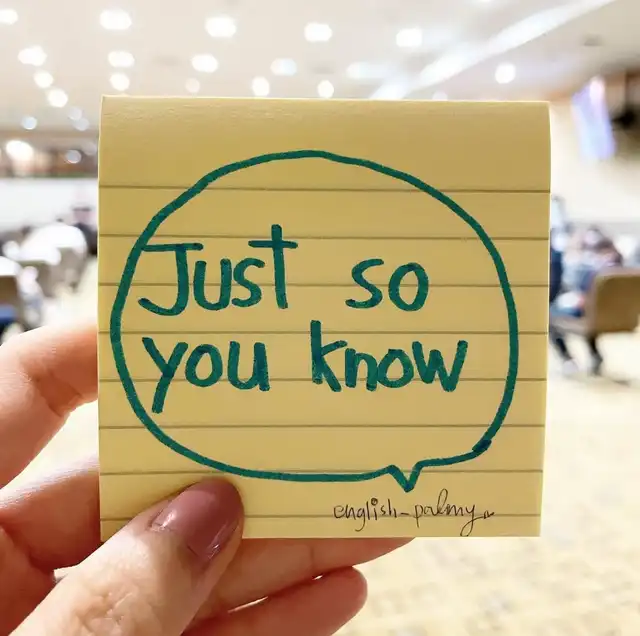 Just so
you know
english_palmy